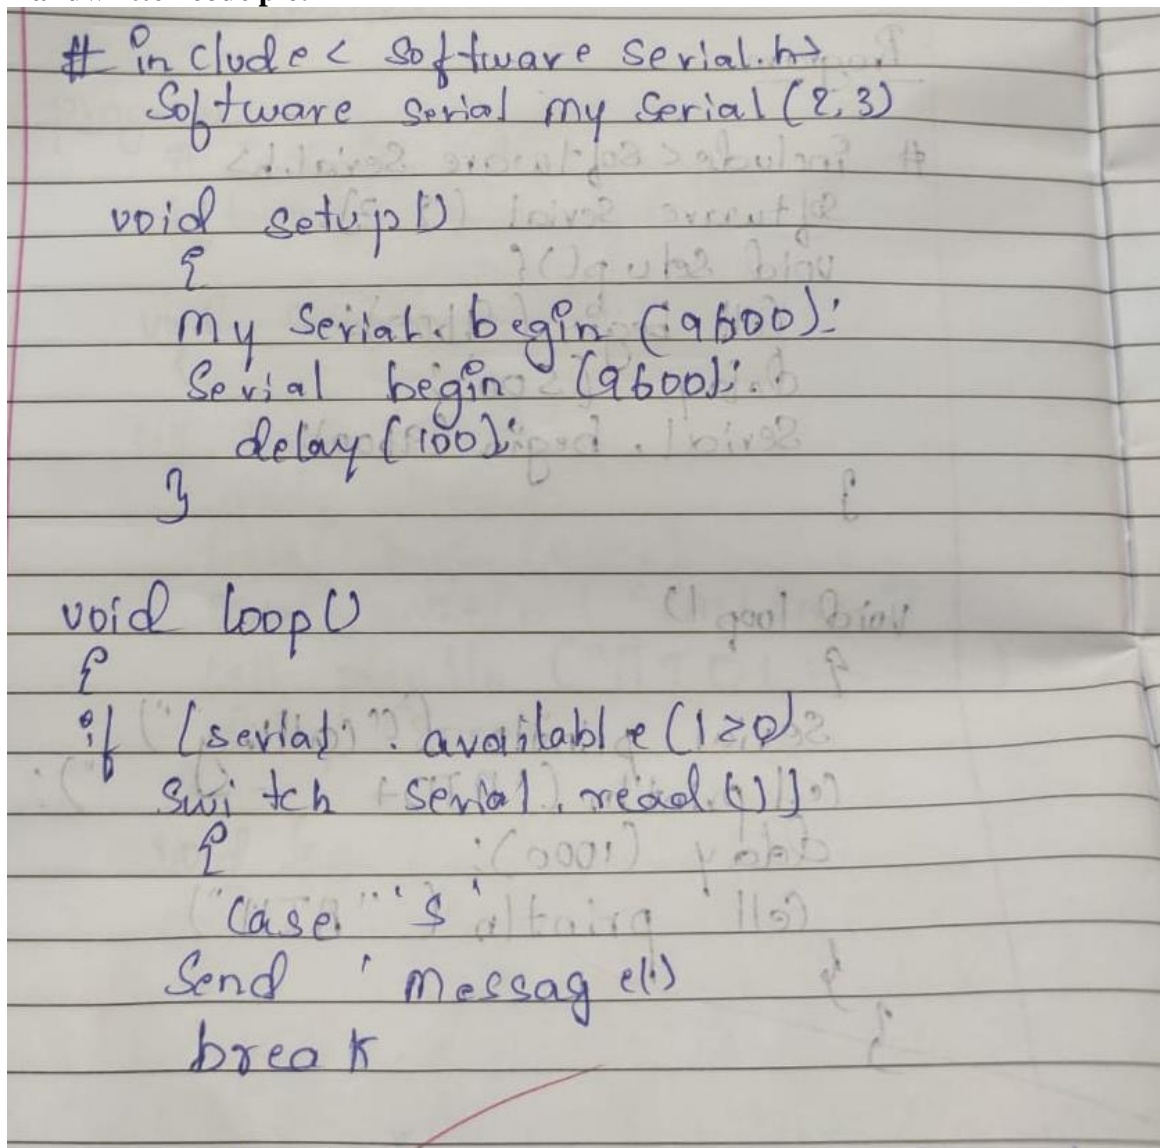 # include < Software serial.h>
Software serial my serial (2,3)
void setup()
{
my Serial. begin (9600);
Serial begin (9600);
delay (100);
}
void loop()
{
if (serial . available (1>0)
Switch serial. read ())
{
case 's'
Send ' Message()
break